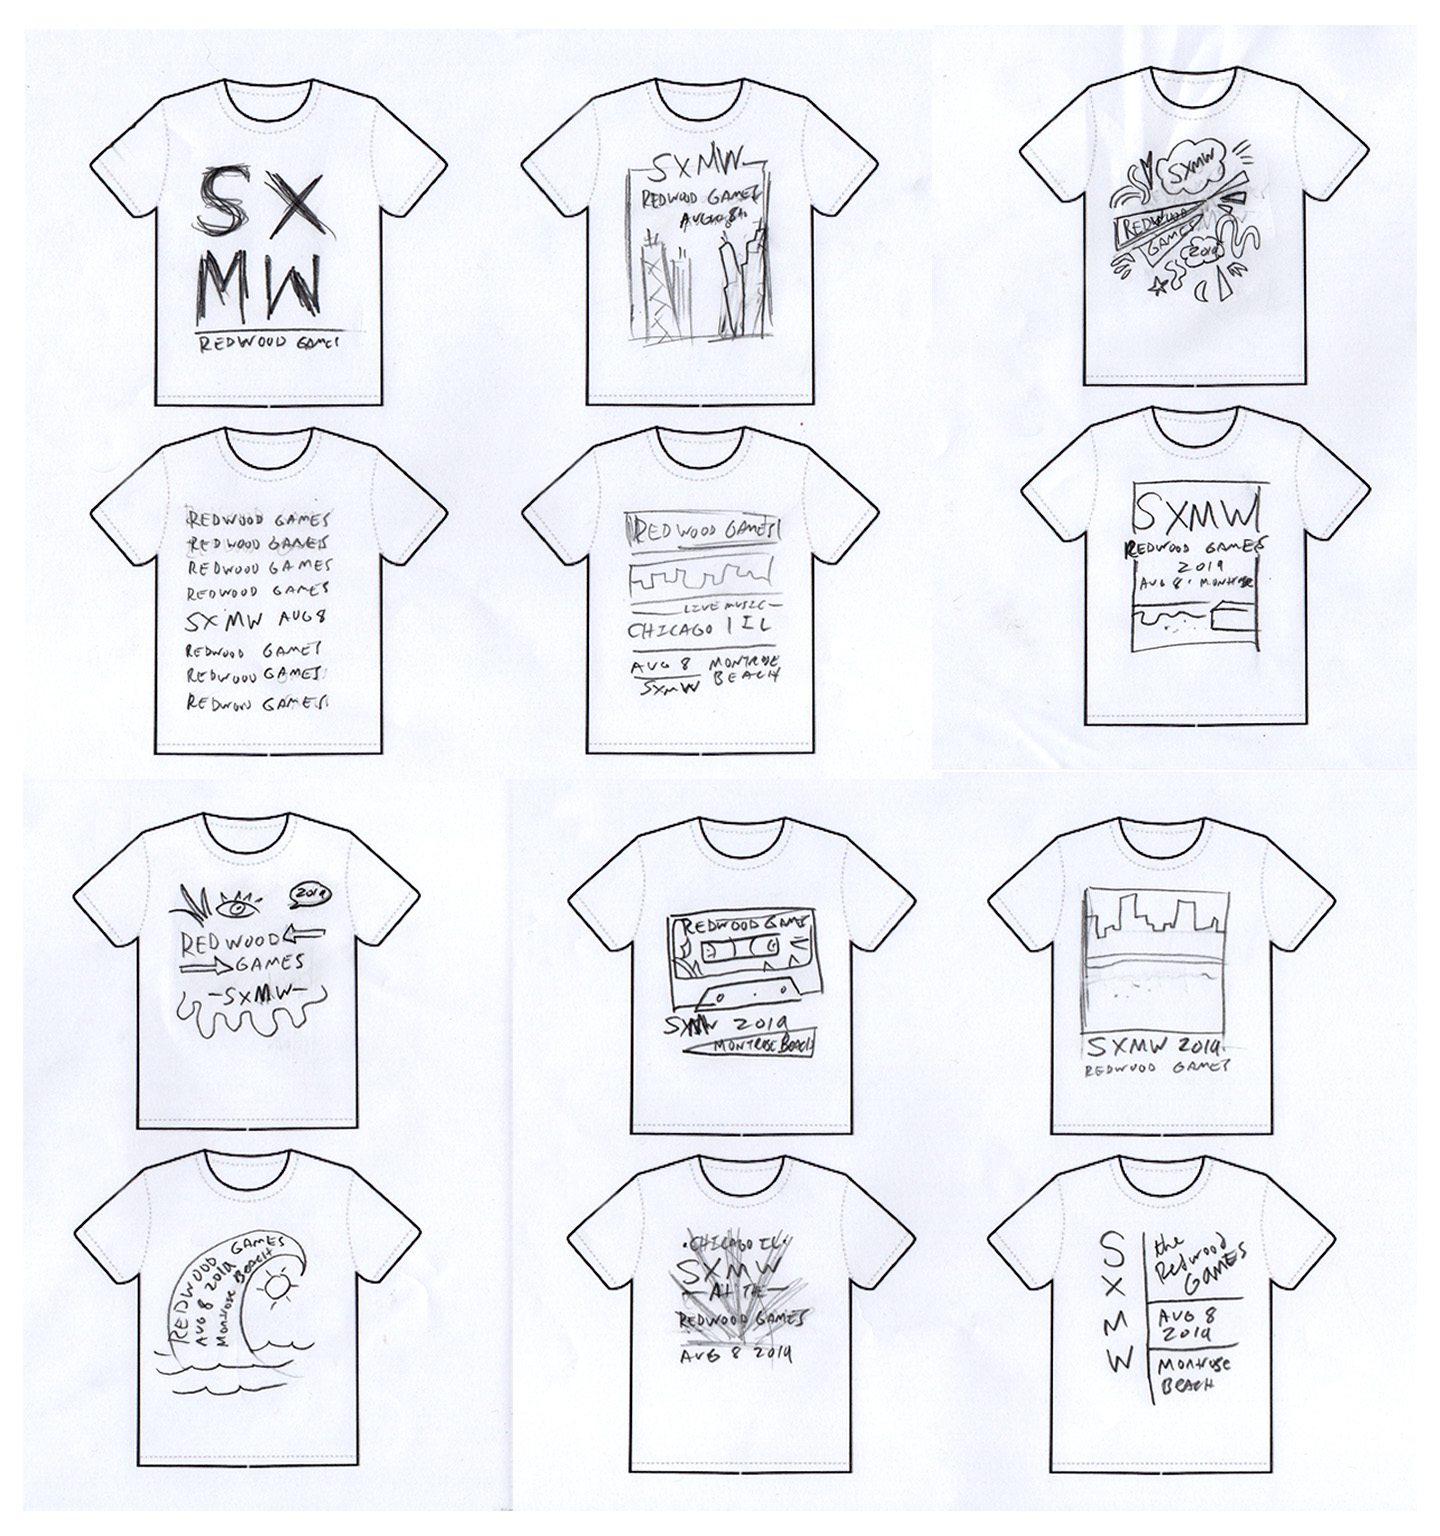 SX
MW
REDWOOD GAMES
SXMW
REDWOOD GAMES
AUG 8th
SXMW
REDWOOD
GAMES
2019
REDWOOD GAMES
REDWOOD GAMES
REDWOOD GAMES
REDWOOD GAMES
SXMW AUG 8
REDWOOD GAMES
REDWOOD GAMES
REDWOOD GAMES
REDWOOD GAMES
LIVE MUSIC
CHICAGO | IL
AUG 8 MONTROSE
SXMW BEACH
SXMW
REDWOOD GAMES
2019
AUG 8 · MONTROSE
2019
REDWOOD
GAMES
-SXMW-
REDWOOD GAMES
SXMW 2019
MONTROSE BEACH
SXMW 2019
REDWOOD GAMES
REDWOOD GAMES
AUG 8 2019
Montrose BEACH
·CHICAGO IL·
SXMW
-AT THE-
REDWOOD GAMES
AUG 8 2019
S
X
M
W
the
Redwood
GAMES
AUG 8
2019
Montrose
BEACH